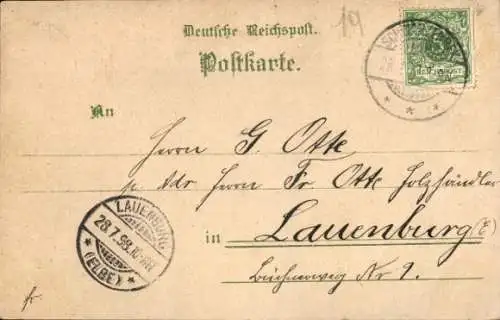 19
Deutsche Reichspost.
Postkarte.
REICHSPOST
An
Herrn G. Otte
p. Adr Herrn Fr Otte Holzhändler
in Lauenburg (E)
Büchenerweg Nr 9.
LAUENBURG
28.7.98.10-11V
* (ELBE) *
fr.